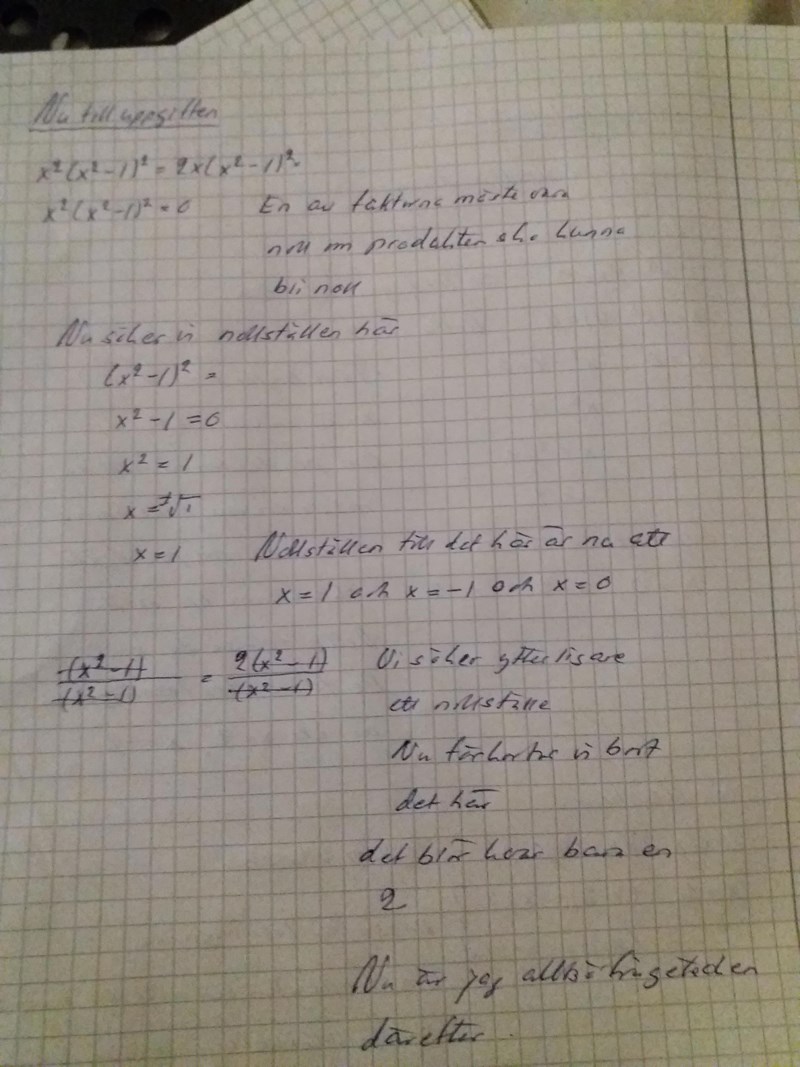 Nu till uppgiften
x²(x²-1)² = 2x(x²-1)²
x²(x²-1)² = 0 En av faktorna måste vara
noll om produkten ska kunna
bli noll
Nu söker vi nollställen här
(x²-1)² =
x²-1 = 0
x² = 1
x = ±√1
x = 1 Nollställen till det här är nu att
x = 1 och x = -1 och x = 0
(x²-1)/(x²-1) = 2(x²-1)/(x²-1) Vi söker ytterligare
ett nollställe
Nu förkortar vi bort
det här
det blir kvar bara en
2
Nu är jag alltså
därefter.